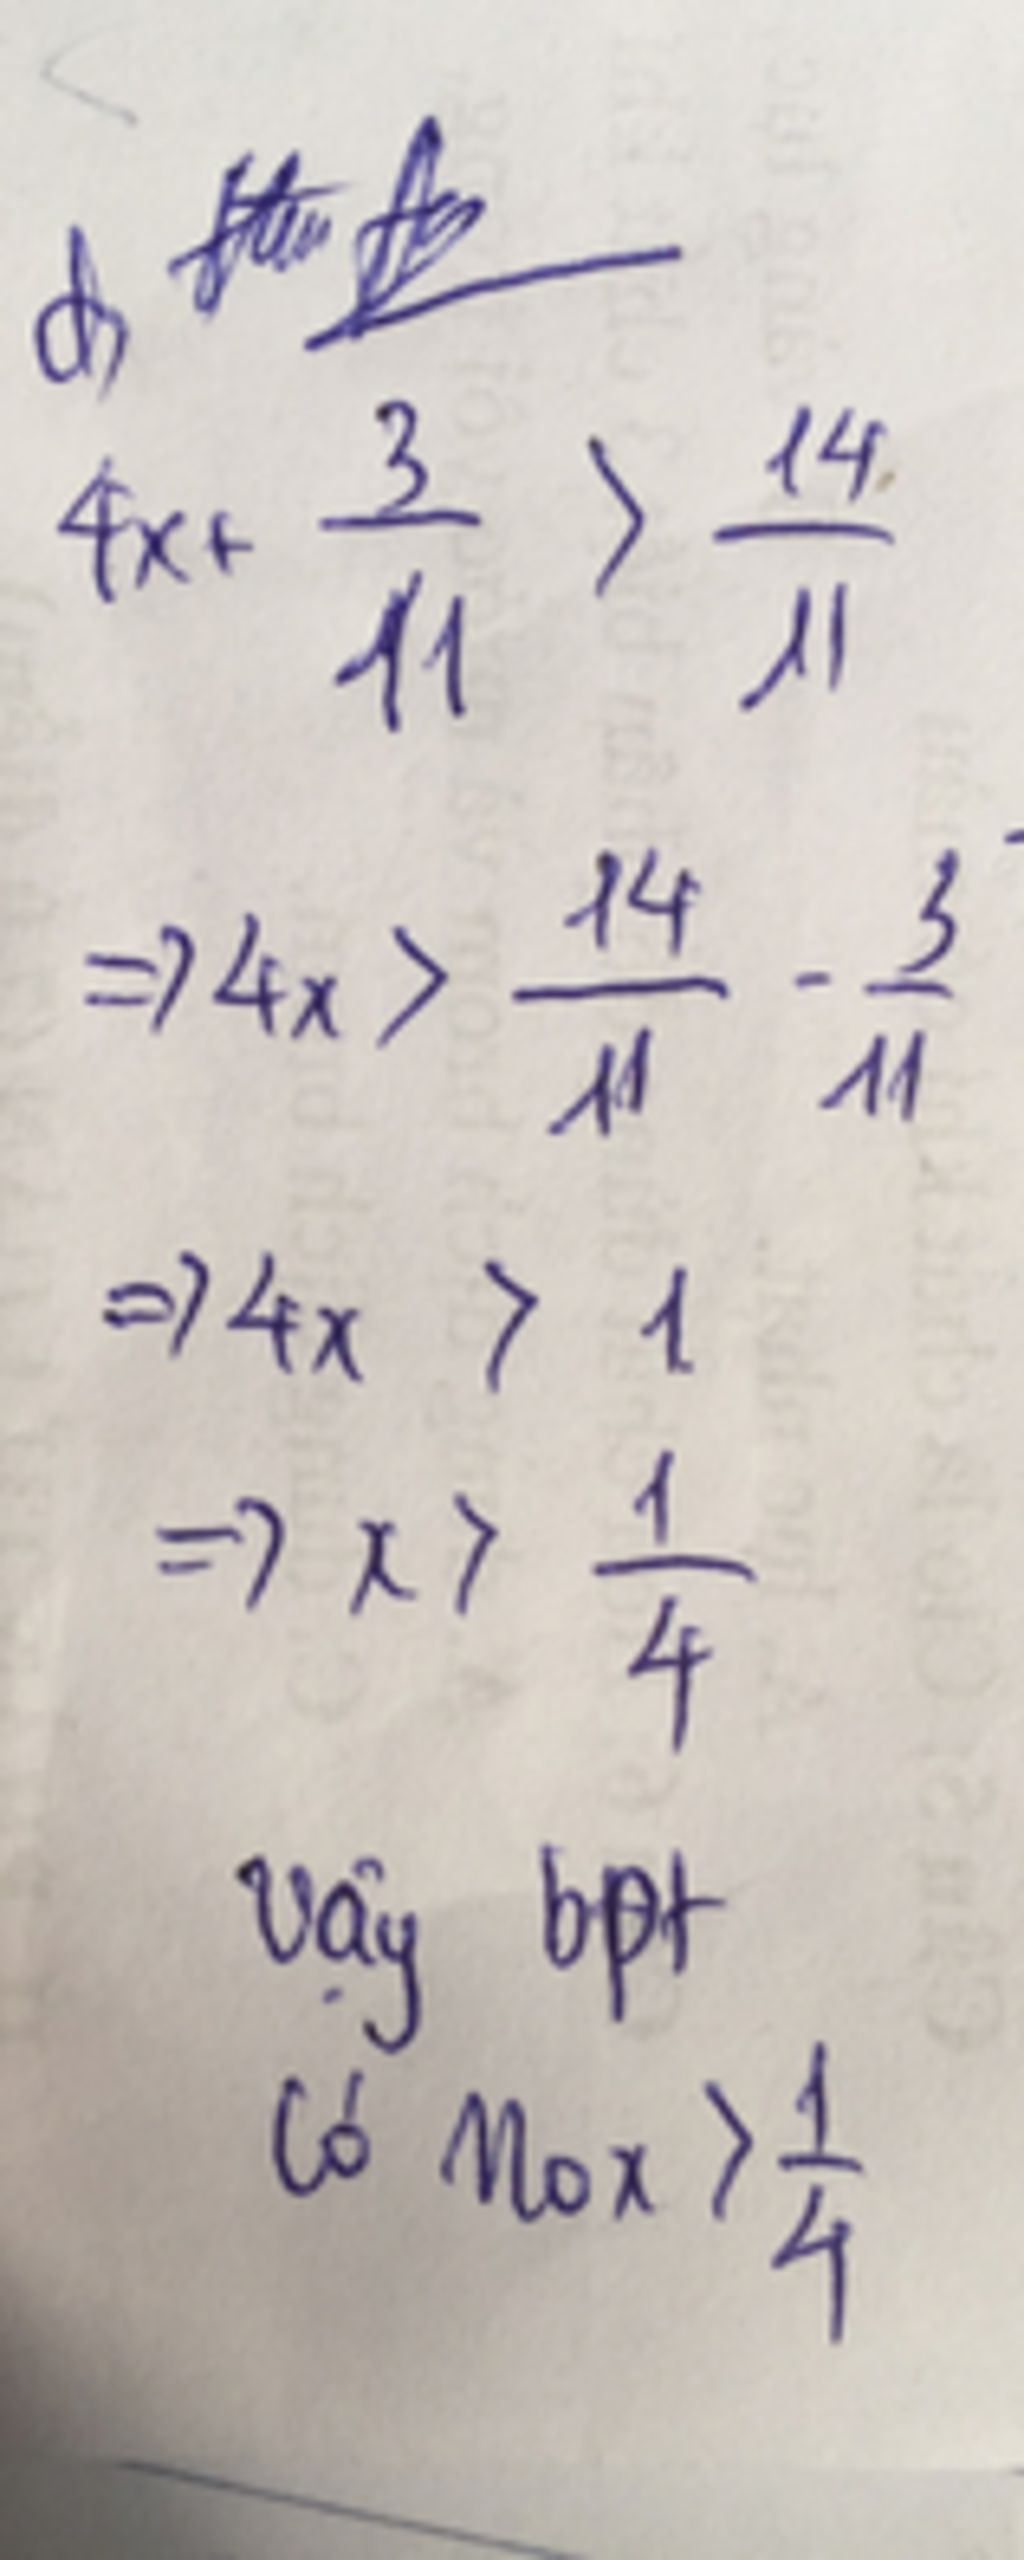 d)
4x + 3/11 > 14/11
=> 4x > 14/11 - 3/11
=> 4x > 1
=> x > 1/4
Vậy bpt
có no x > 1/4